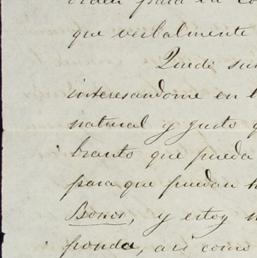 orden para en co
que verbalmente
Quedo sum
interesandome en l
natural y gusto q
brante que pueda
para que puedan h
Bonos, y estoy
ponda, así como